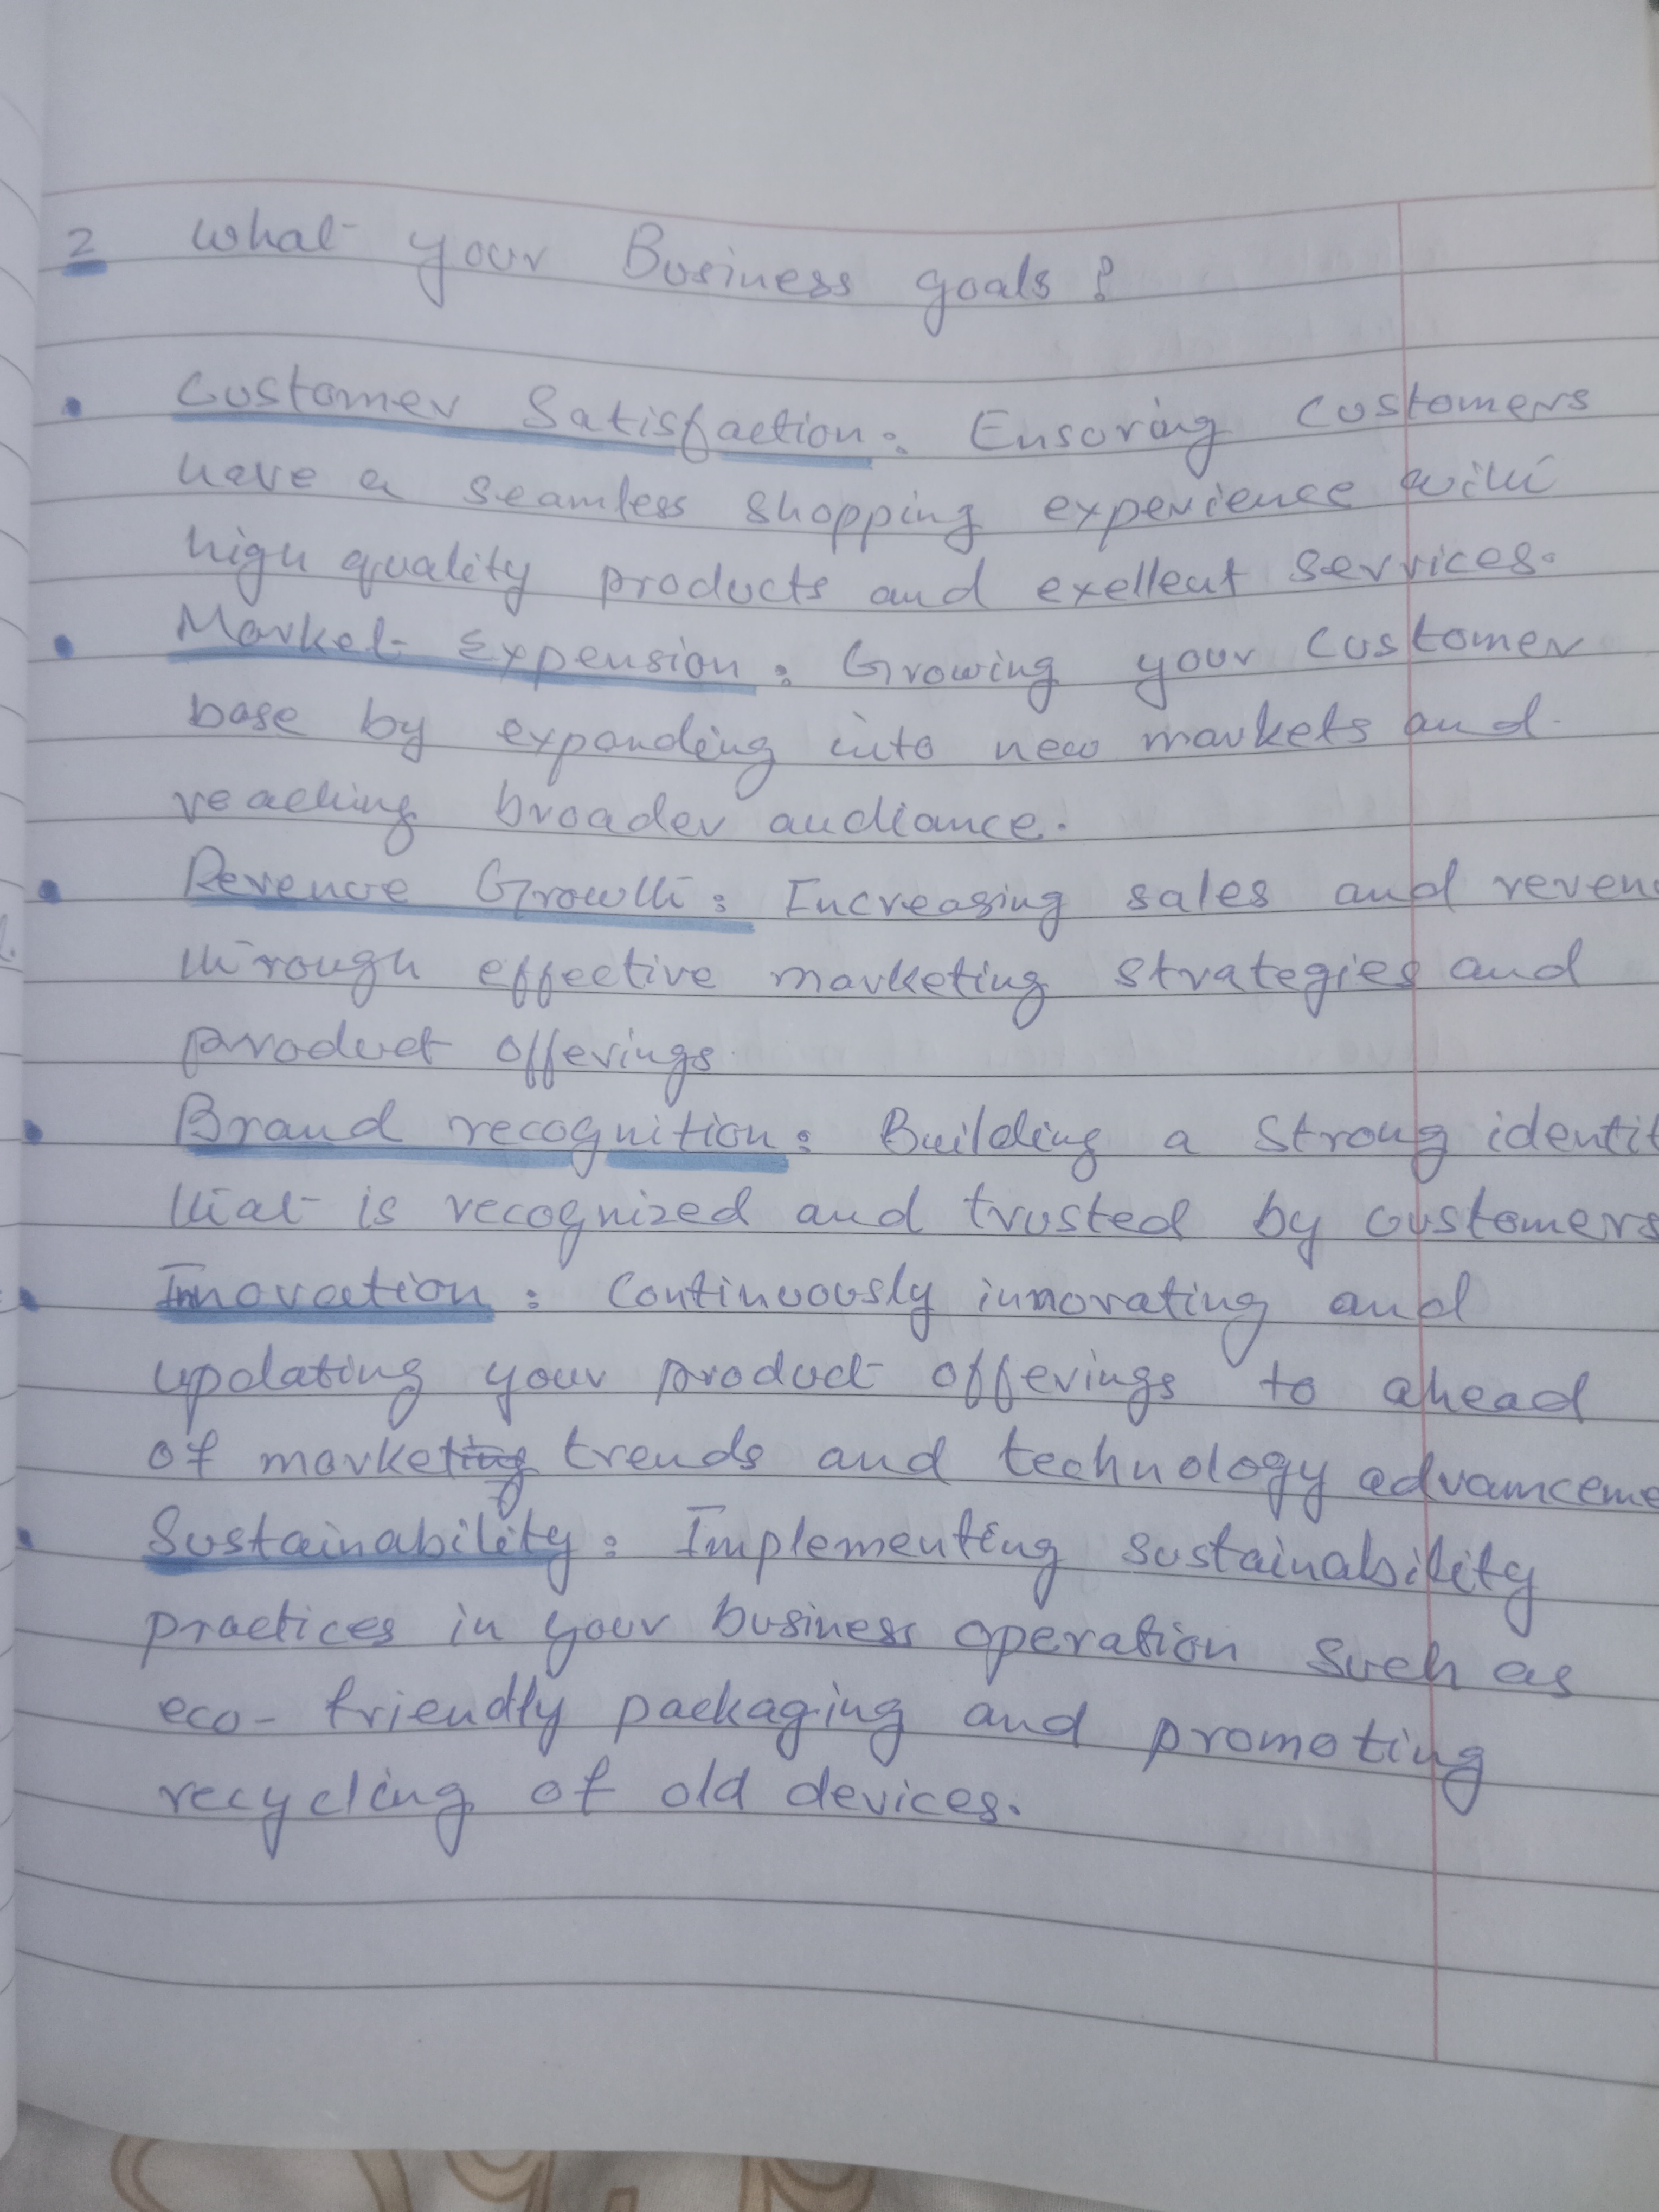 2 What your Business goals?
• Customer Satisfaction: Ensuring customers
have a seamless shopping experience with
high quality products and exellent services.
• Market Expension: Growing your customer
base by expanding into new markets and
reaching broader audiance.
• Revenue Growth: Increasing sales and reven
through effective marketing strategies and
product offerings
• Brand recognition: Building a strong identit
that is recognized and trusted by customers
• Innovation: Continuously innovating and
updating your product offerings to ahead
of marketing trends and technology advanceme
• Sustainability: Implementing sustainability
practices in your business operation such as
eco-friendly packaging and promoting
recycling of old devices.